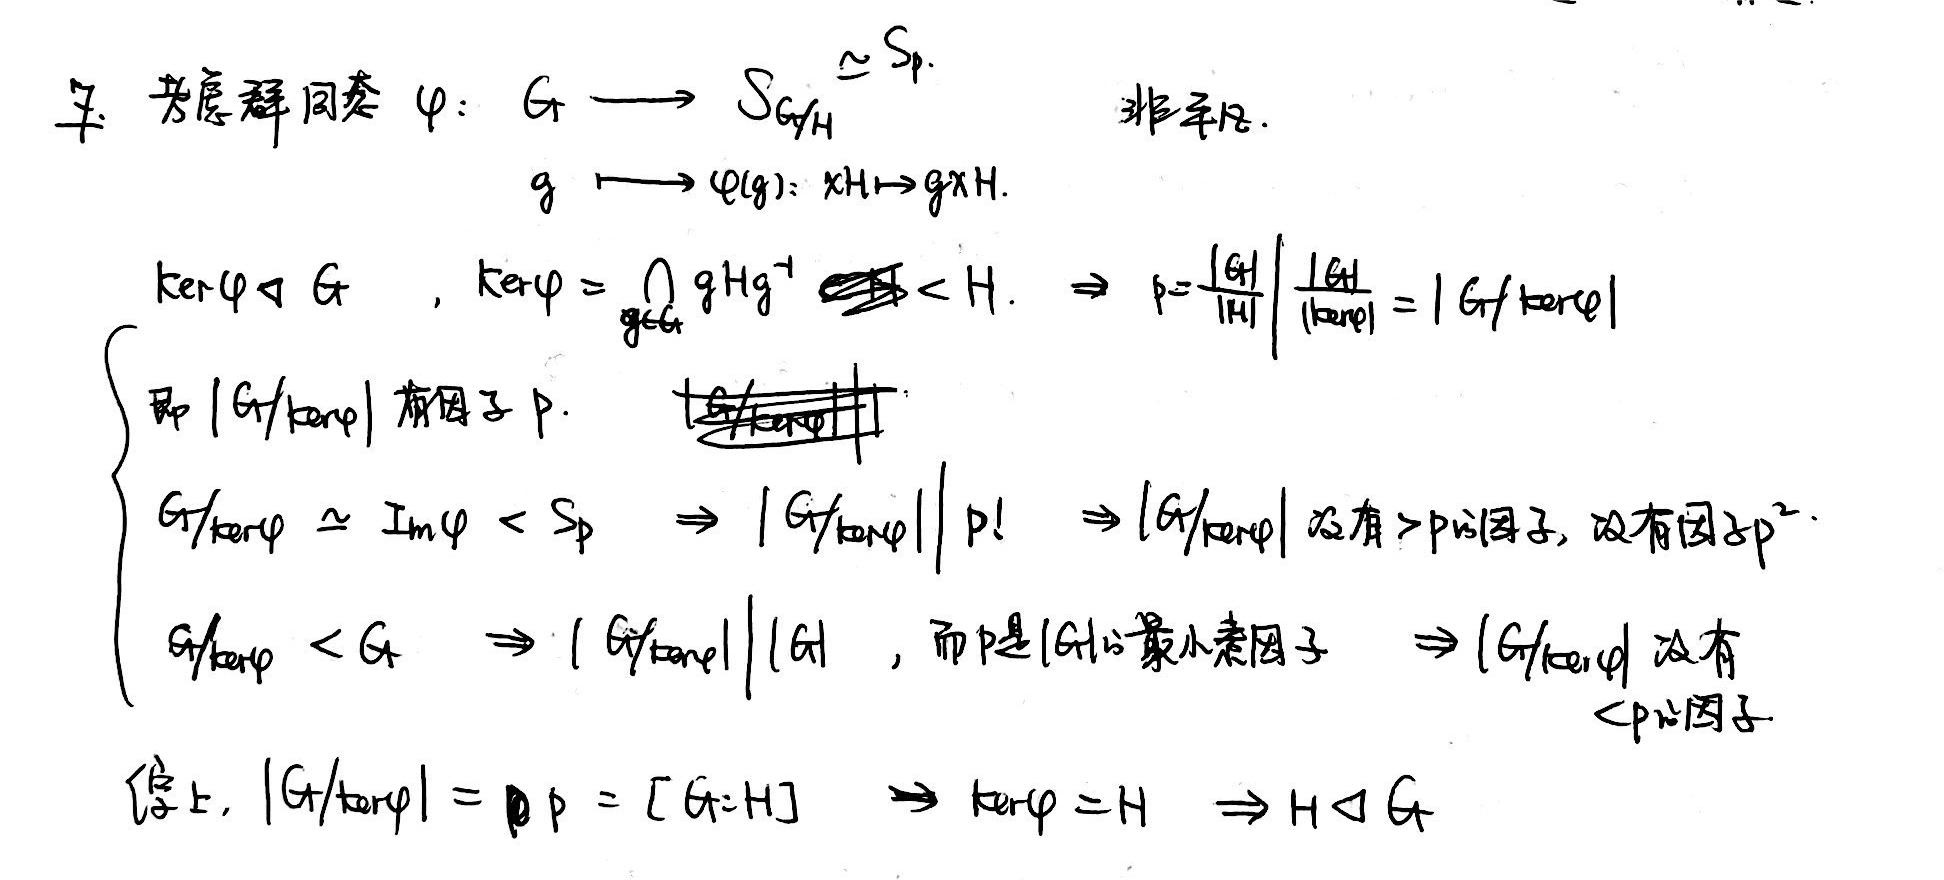 7. 考虑群同态 φ: G ⟶ S_{G/H} ≃ S_p. 非平凡.
g ⟼ φ(g): xH ↦ gxH.
kerφ ◁ G , kerφ = ⋂_{g∈G} gHg⁻¹ < H. ⇒ p = |G|/|H| | |G|/|kerφ| = |G/kerφ|
即 |G/kerφ| 有因子 p.
G/kerφ ≃ Imφ < S_p ⇒ |G/kerφ| | p! ⇒ |G/kerφ| 没有 >p的因子, 没有因子p².
G/kerφ < G ⇒ |G/kerφ| | |G| , 而p是|G|的最小素因子 ⇒ |G/kerφ| 没有
<p的因子.
综上, |G/kerφ| = p = [G:H] ⇒ kerφ = H ⇒ H ◁ G